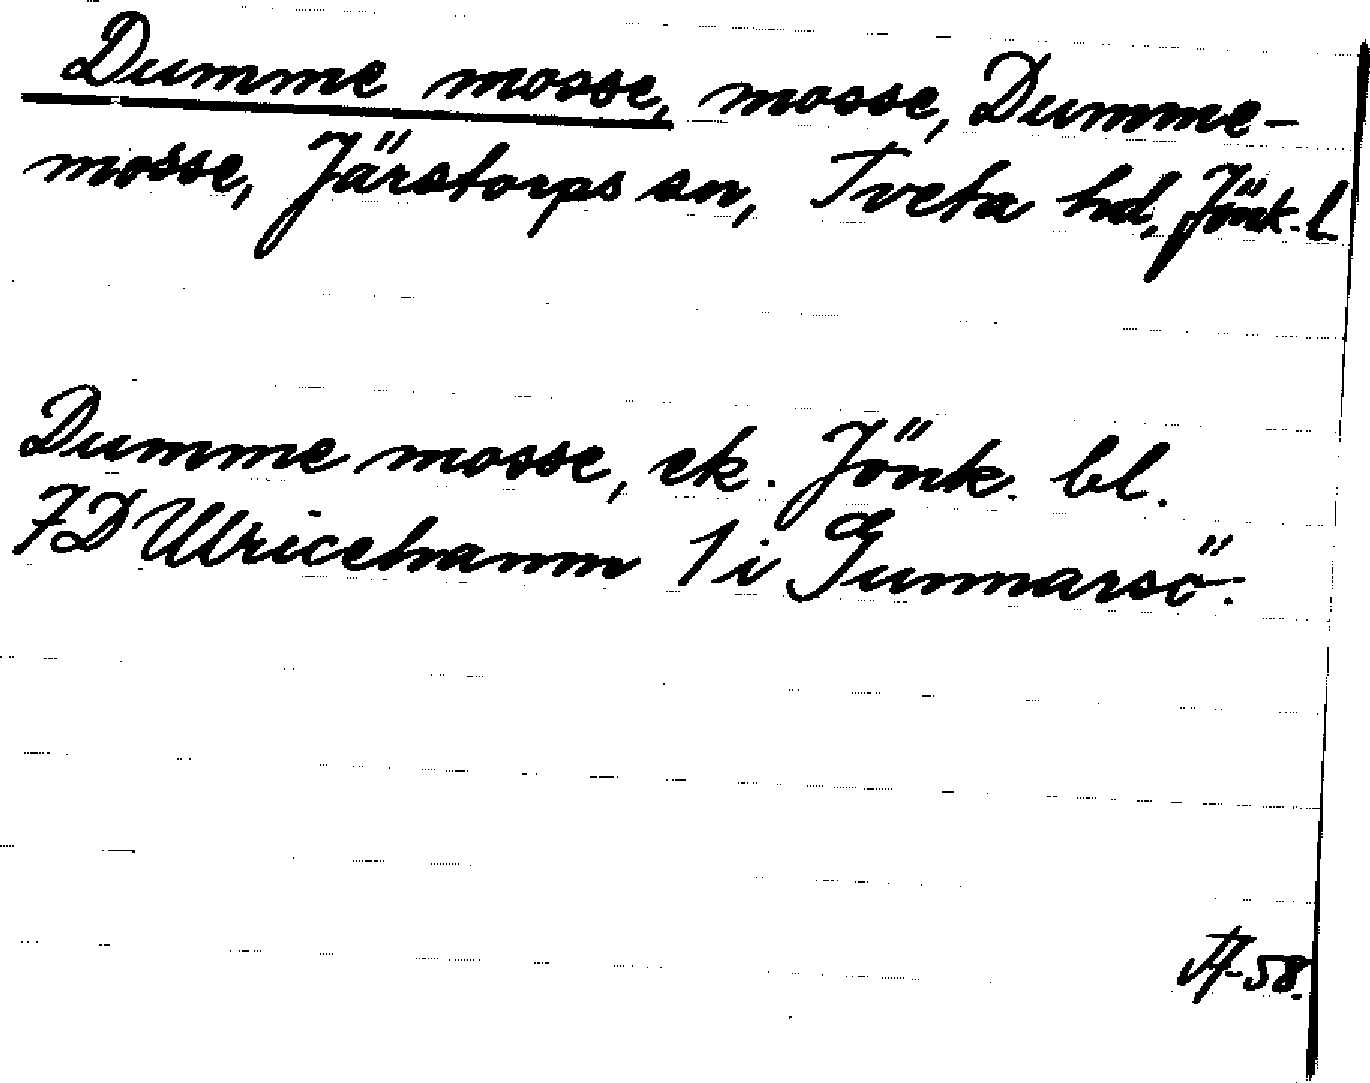 Dumme mosse, mosse, Dumme-
mosse, Järstorps sn, Tveta hd, Jönk. l.
Dumme mosse, ek. Jönk. bl.
7D Ulricehamn 1 i Gunnarsö.
-58.